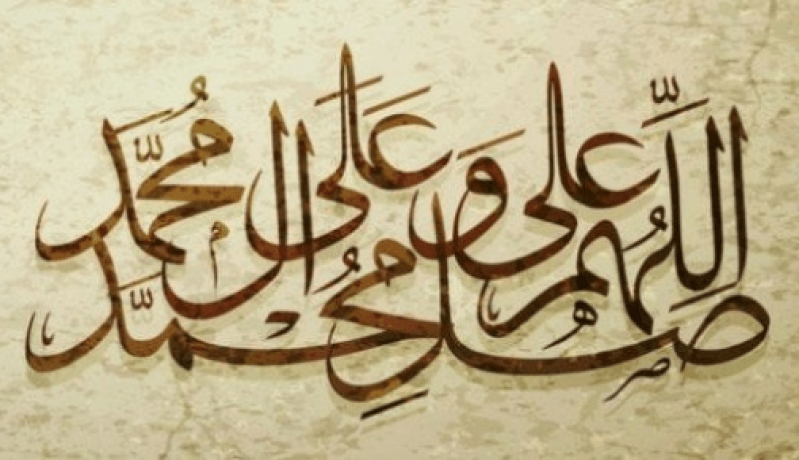 اللّهُم صل على محمد وعلى ال محمد